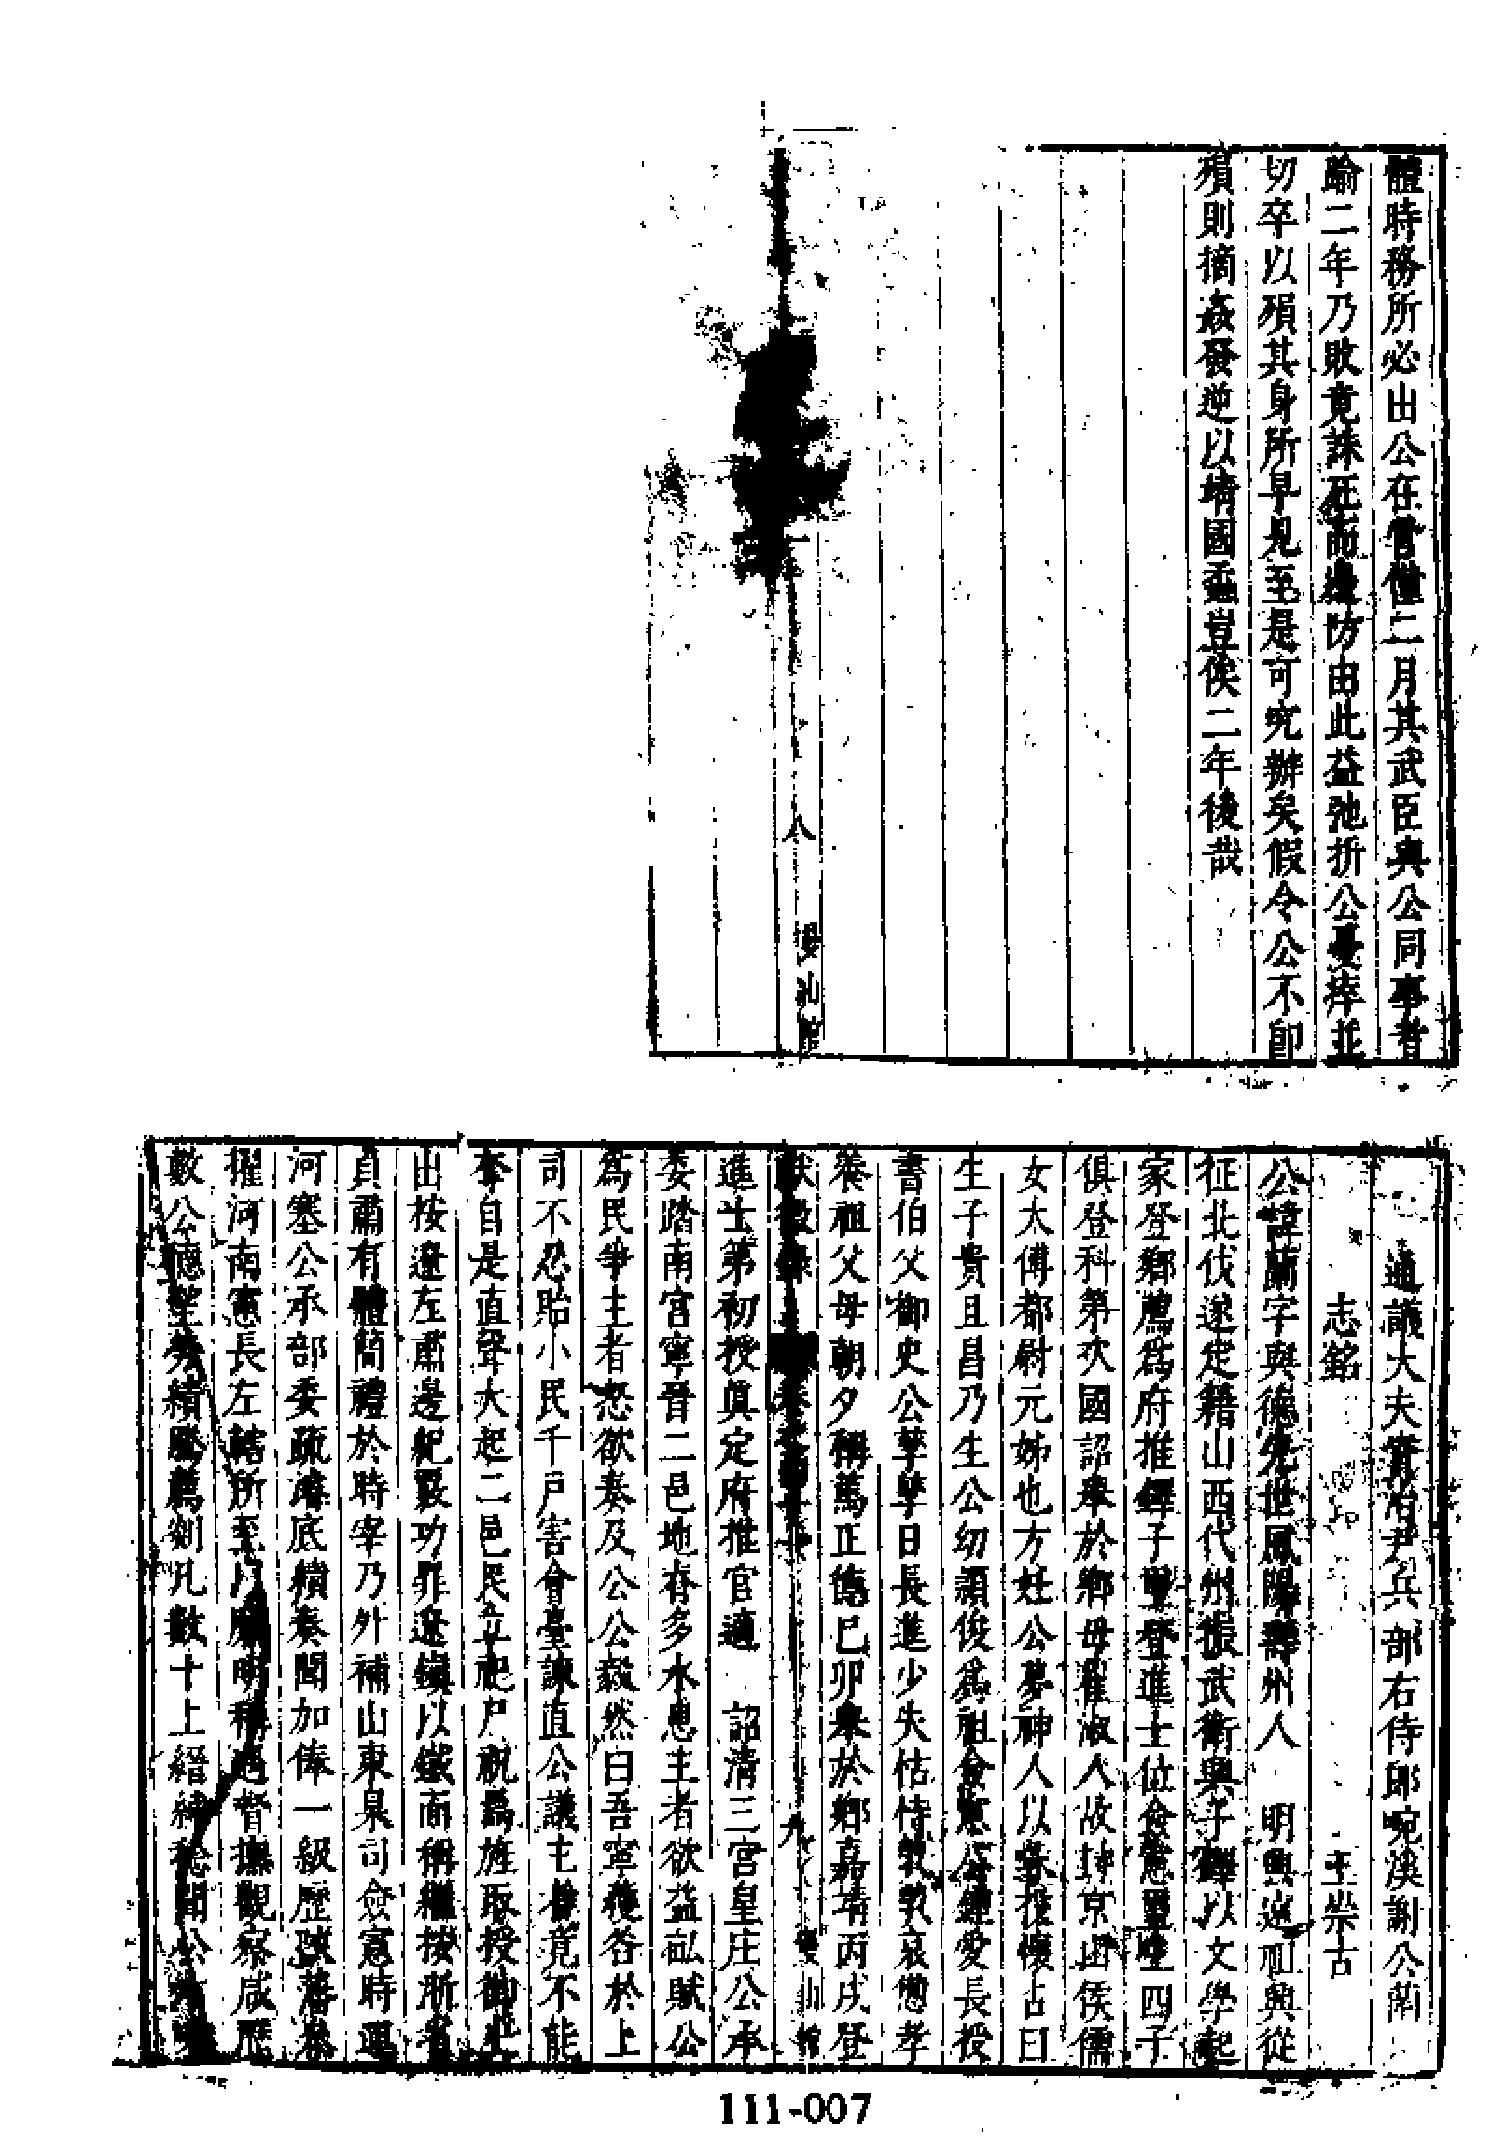 體時務所必出公在營僅二月其武臣與公同事者
踰二年乃敗竟誅死而邊防由此益弛折公憂瘁並
切卒以殞其身所早見至是可究辦矣假令公不卽
殞則摘姦發逆以靖國蠹豈俟二年後哉
八
曼山館
通議大夫賞治尹兵部右侍郎畹溪謝公蘭
志銘 王崇古
公諱蘭字與德先世鳳陽壽州人 明興遠祖興從
征北伐遂定籍山西代州振武衛興子鐸以文學起
家登鄉薦爲府推鐸子璽登進士位僉憲璽生四子
俱登科第次國詔舉於鄉母翟淑人故封京山侯儒
女太傅都尉元姊也方妊公夢神人以泰授懷占曰
生子貴且昌乃生公幼穎俊爲祖僉憲公鍾愛長授
書伯父御史公孳孳日長進少失怙恃煢煢哀戀孝
養祖父母朝夕稱篤正德己卯舉於鄉嘉靖丙戌登
獻徵錄 卷 九 曼山館
進士第初授眞定府推官適 詔清三宮皇庄公承
委踏南宮寧晉二邑地春多水患主者欲益畝賦公
爲民爭主者怒欲奏及公公毅然曰吾寧獲咎於上
司不忍貽小民千戶害會臺諫直公議主者竟不能
奪自是直聲大起二邑民立祀尸祝焉旌取授御史
出按遼左肅邊紀覈功罪遼鎮以鐵面稱繼按浙省
貞肅有體簡禮於時宰乃外補山東臬司僉憲時運
河塞公承部委疏濬底績奏聞加俸一級歷陝藩叅
擢河南憲長左轄所至以廉明稱過督撫觀察咸歷
數公德望勞績騰薦剡凡數十上縉紳稔聞公
111-007